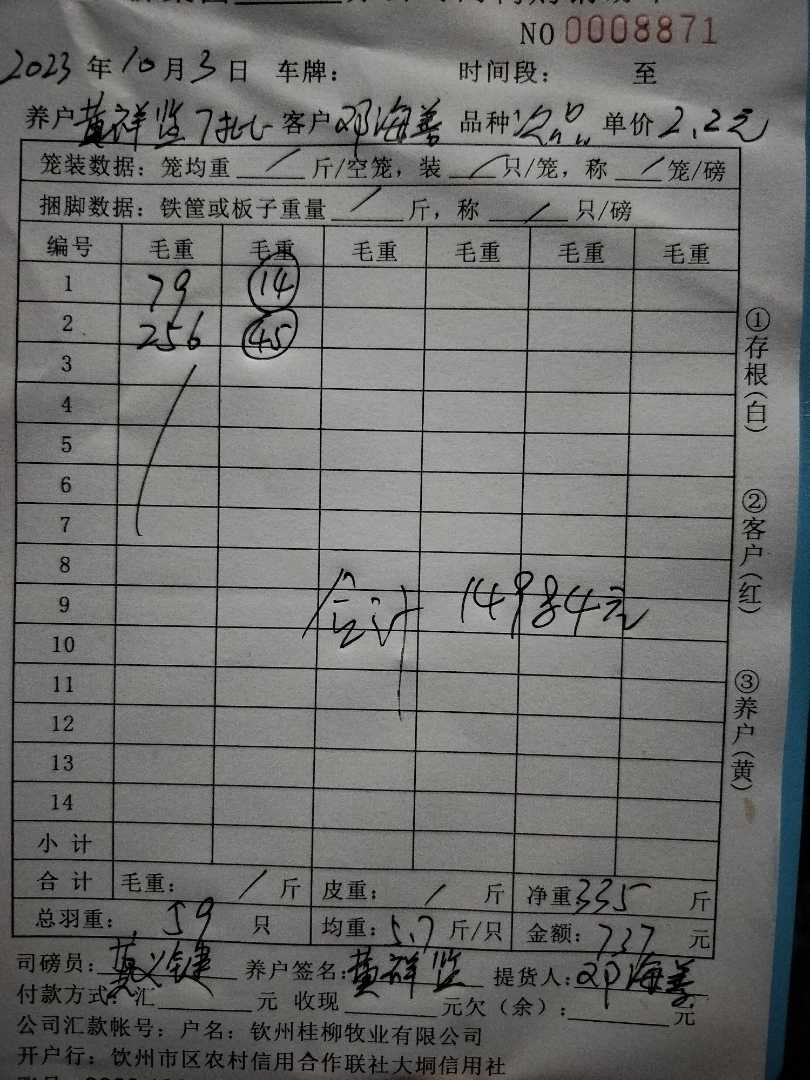 NO 0008871
2023 年 10 月 3 日 车牌： 时间段： 至
养户 黄祥监7批 客户 邓海善 品种 次品 单价 2.2元
笼装数据：笼均重 / 斤/空笼，装 / 只/笼，称 / 笼/磅
捆脚数据：铁筐或板子重量 / 斤，称 / 只/磅
编号 毛重 毛重 毛重 毛重 毛重 毛重
1 79 14
2 256 45
3
4
5
6
7
8
9 合计 14984元
10
11
12
13
14
小计
合计 毛重： / 斤 皮重： / 斤 净重 335 斤
总羽重： 59 只 均重：5.7 斤/只 金额：737 元
司磅员：黄义键 养户签名：黄祥监 提货人：邓海善
付款方式：汇 元 收现 元欠（余）： 元
公司汇款帐号：户名：钦州桂柳牧业有限公司
开户行：饮州市区农村信用合作联社大垌信用社
①存根（白）
②客户（红）
③养户（黄）